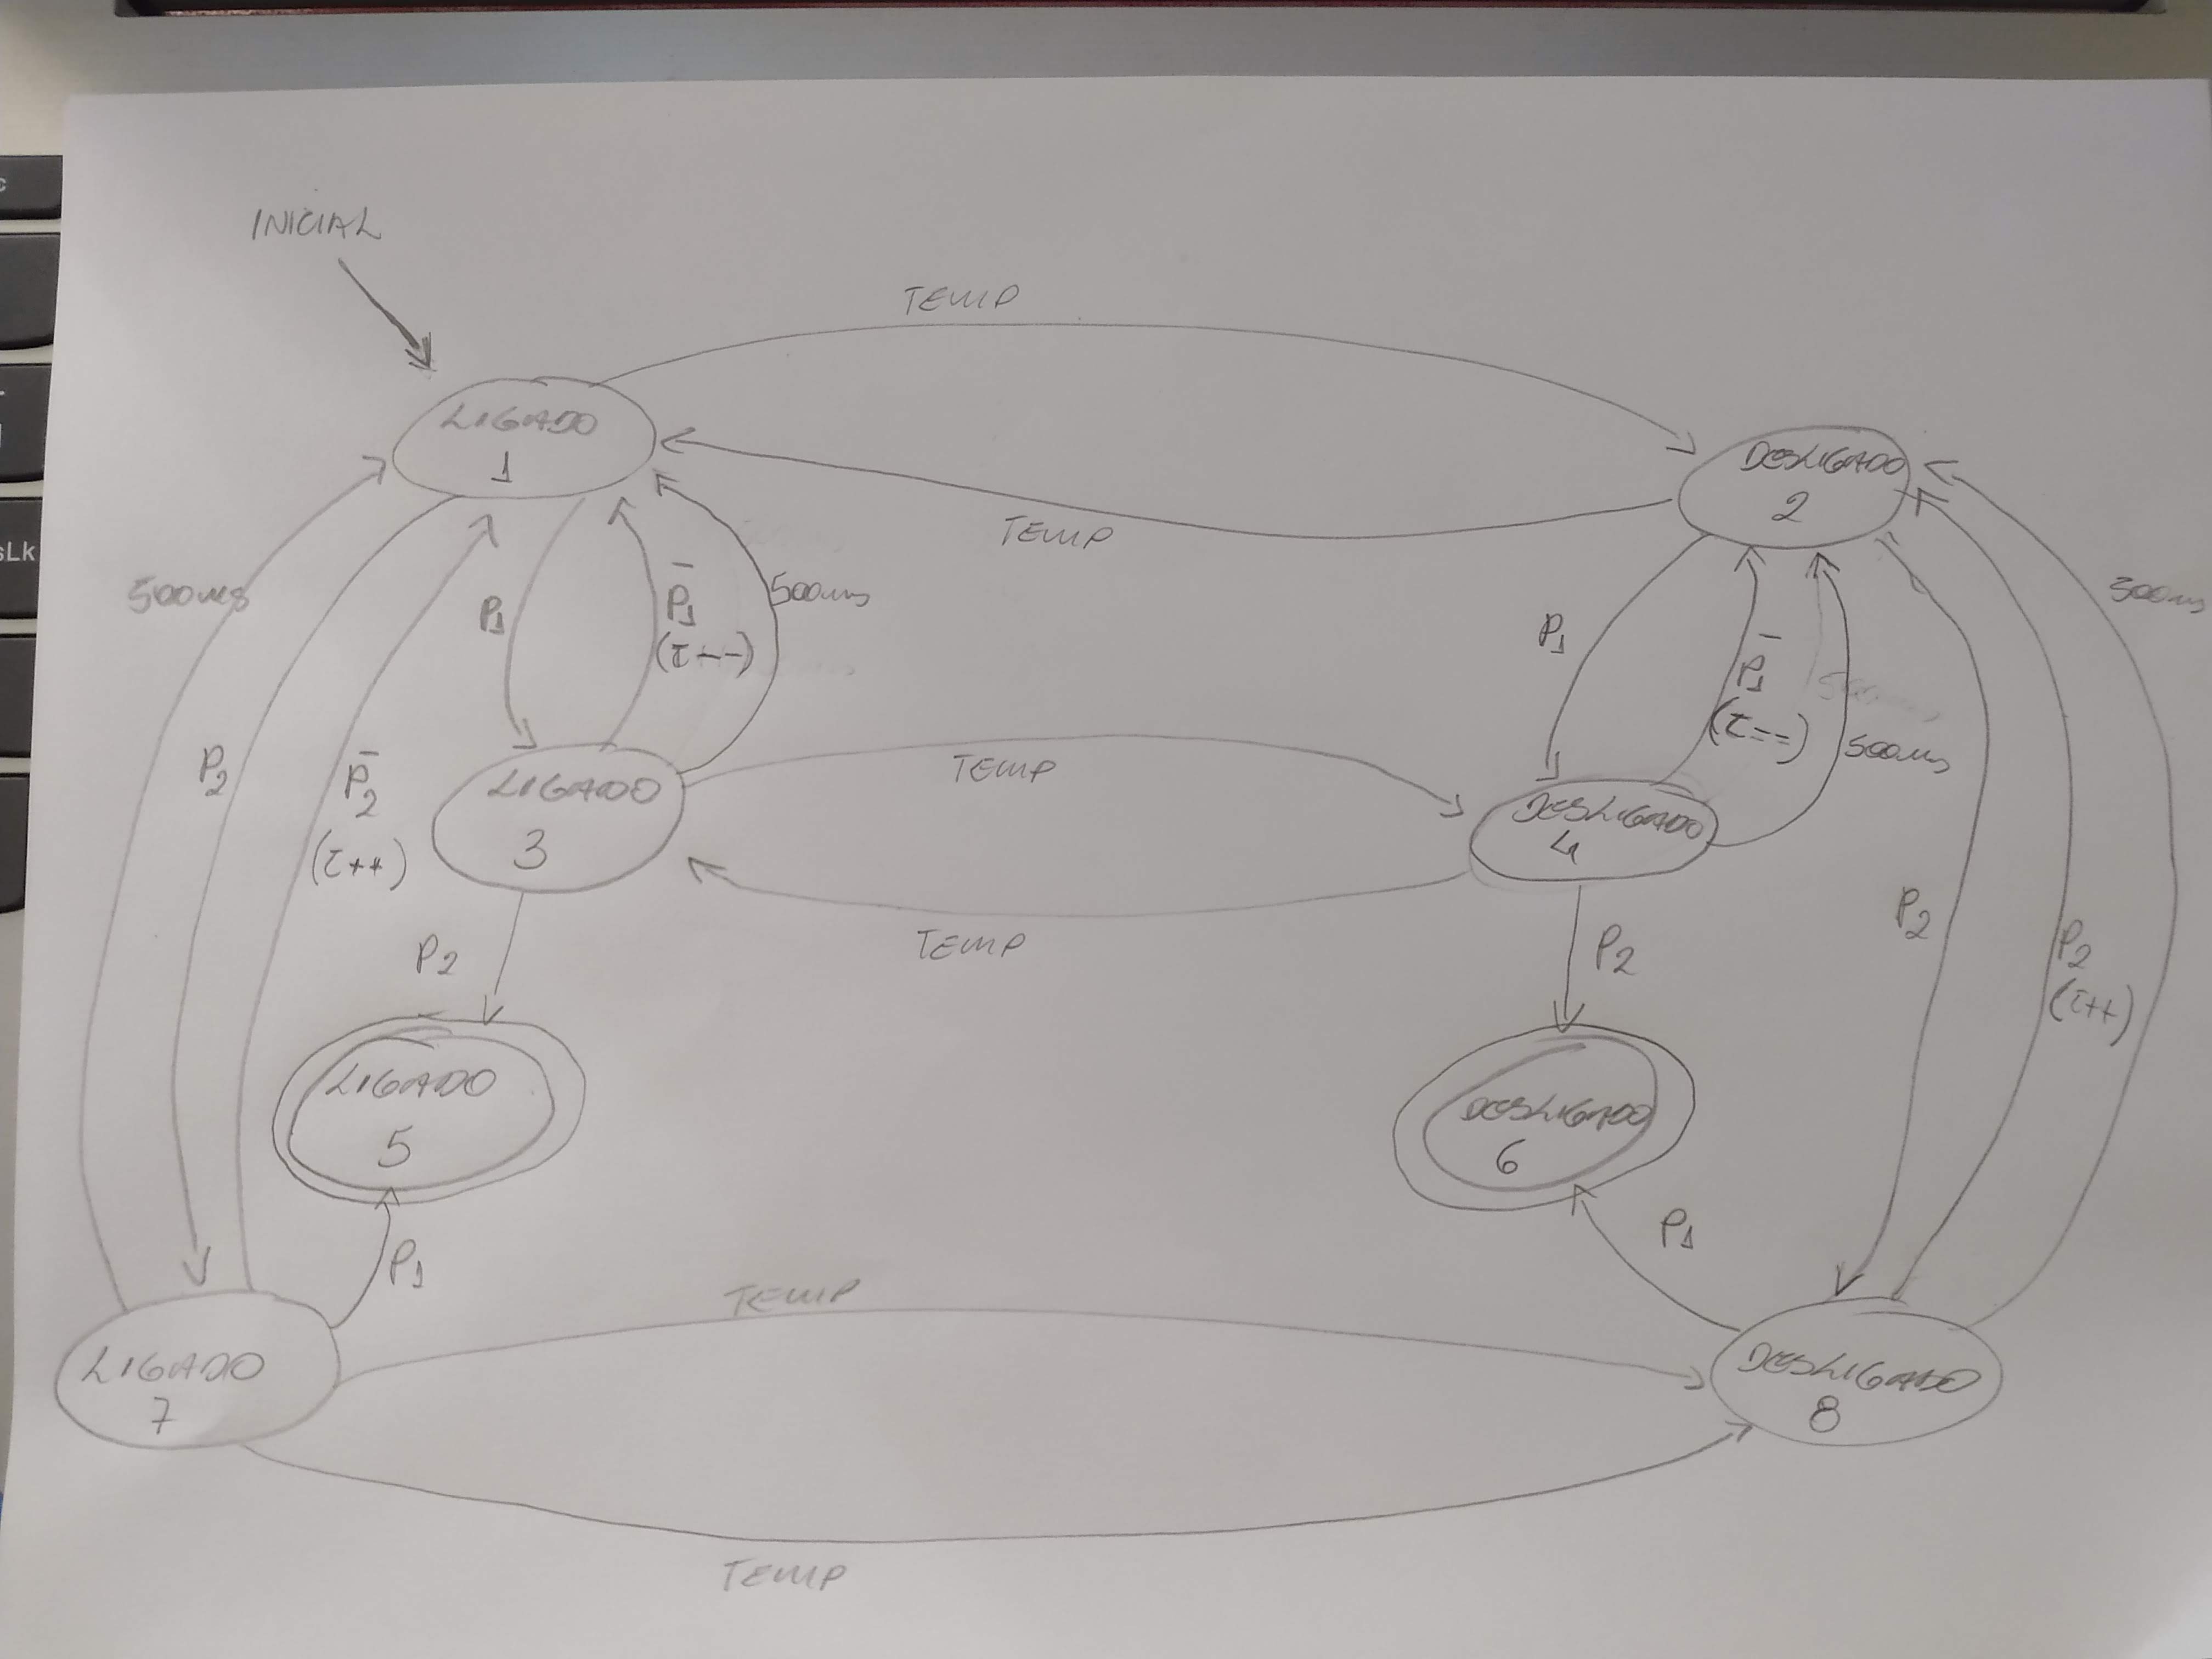 INICIAL
TEMP
LIGADO
1
DESLIGADO
2
TEMP
500ms
P1
P̅1
(τ--)
500ms
P1
P̅1
(τ--)
500ms
500ms
P2
P̅2
(τ++)
LIGADO
3
TEMP
DESLIGADO
4
TEMP
P2
P2
P2
P2
(τ++)
LIGADO
5
DESLIGADO
6
P1
P1
TEMP
LIGADO
7
DESLIGADO
8
TEMP